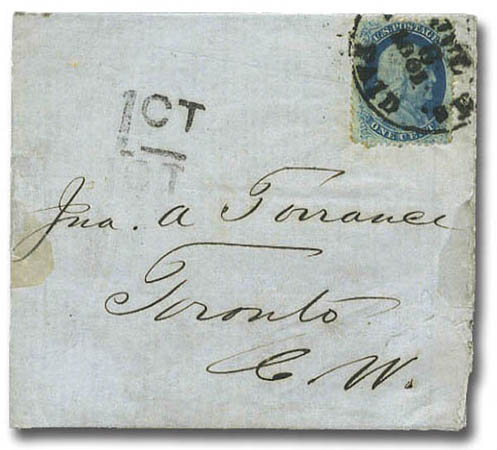 U.S. POSTAGE
ONE CENT
1CT
Jna. A Torrance
Toronto
C. W.